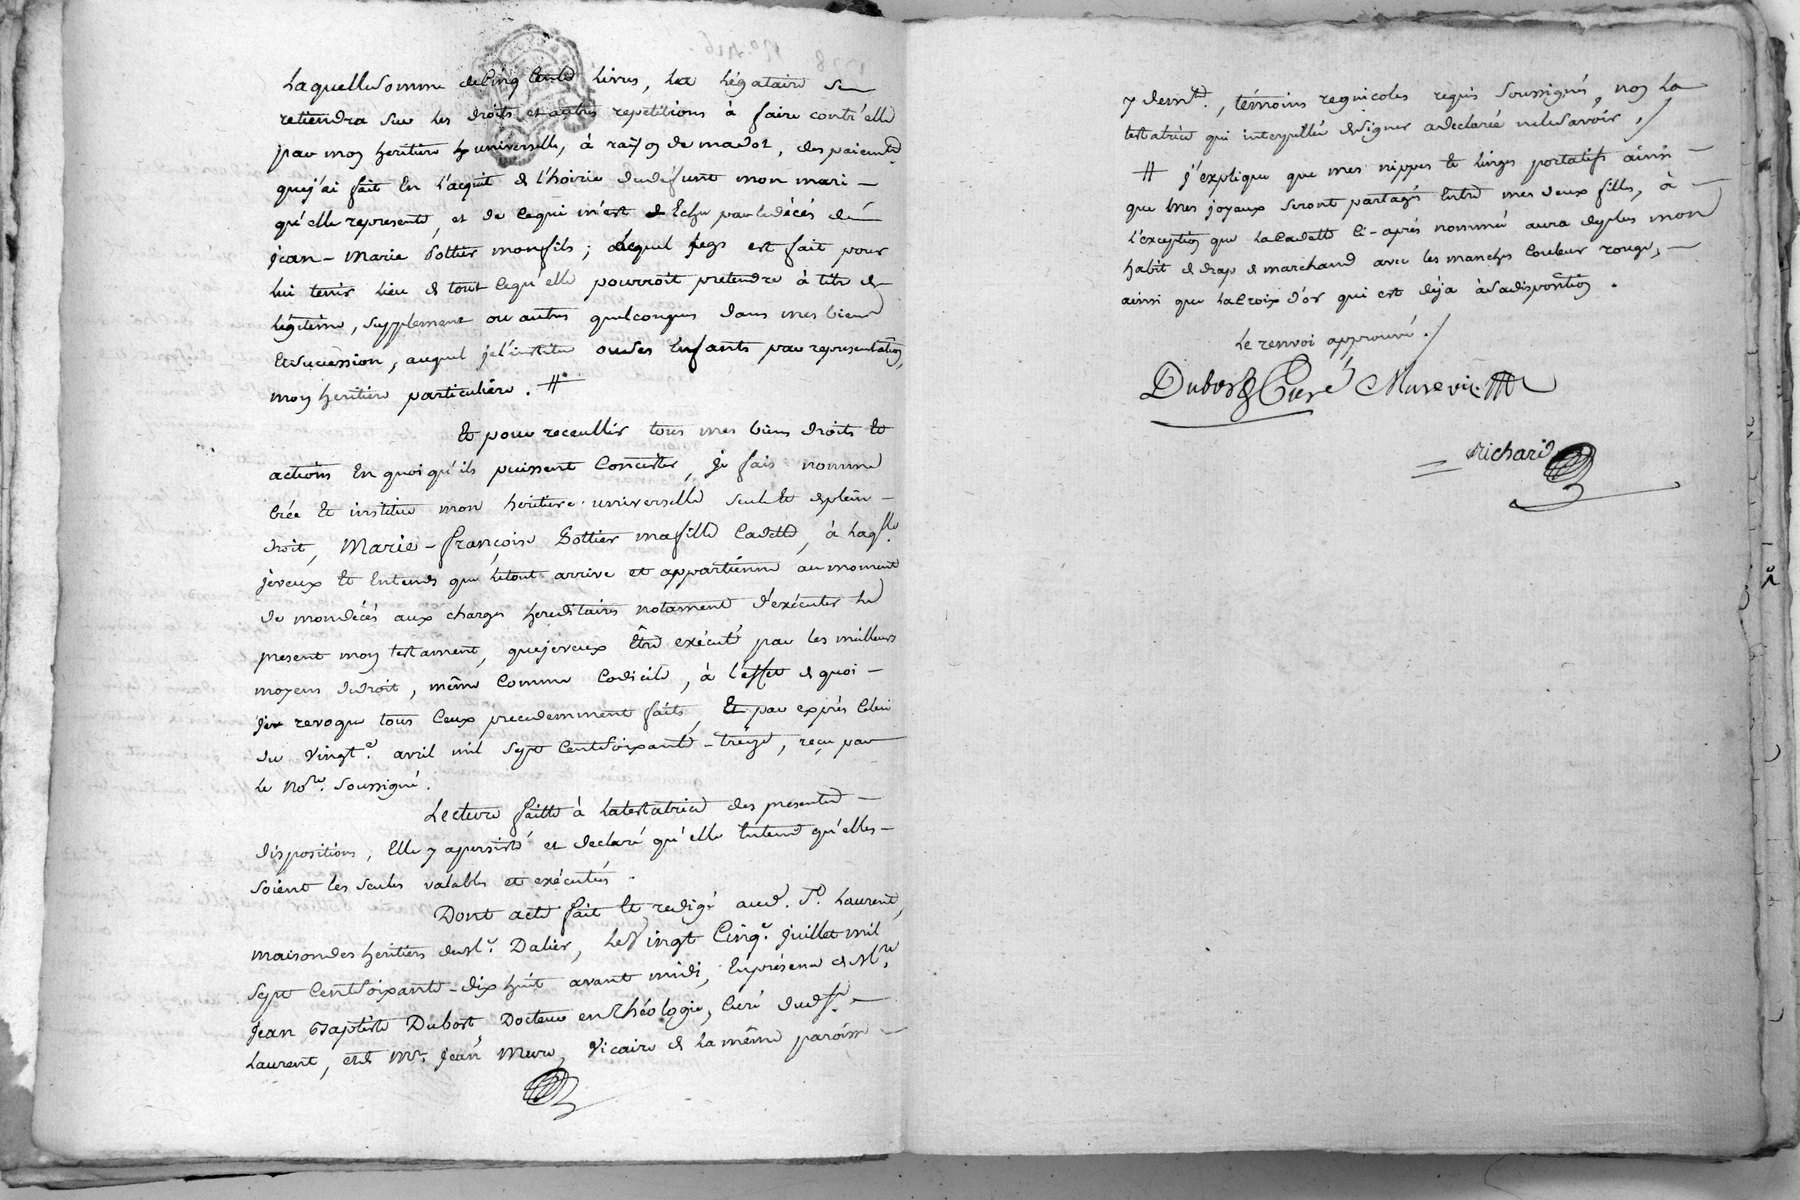 Laquelle somme de cinq cents livres, la légataire se
retiendra sur les droits et autres repetitions à faire contr'elle
par mon heritière universelle, à raison de ma dot, des paiements
que j'ai fait en l'acquit de l'hoirie dudefunt mon mari -
qu'elle represente, et de ce qui m'est Echu par le décès de
jean - Marie Pottier mon fils; lequel legs est fait pour
lui tenir lieu de tout ce qu'elle pourroit pretendre à titre de
légitime, supplement ou autres quelconques dans mes biens
Et succession, auquel je l'institue ou ses Enfants par representation,
mon heritière particulière. #
Et pour receuillir tous mes biens droits Et
actions En quoi qu'ils puissent Concister, je fais nomme
Crée Et institue mon heritiere universelle seule Et de plein -
droit, Marie - françoise Pottier ma fille Cadette, à laqlle
je veux Et Entends que letout arrive et appartienne au moment
de mon décès aux charges hereditaires notament d'exécuter le
present mon testament, que je veux Être exécuté par les meilleurs
moyens de droit, même Comme Codicile, à l'effet de quoi -
je revoque tous Ceux precedemment faits, Et par exprès Celui
du vingt.e avril mil sept Cent soixante - treize, reçu par
le No.re soussigné.
Lecture faitte à la testatrice des presentes -
dispositions, Elle y a persisté et declaré qu'elle Entend qu'elles -
soient les seules valables et exécutées.
Dont acte fait Et redigé aud. St. Laurent,
maison des heritiers de Mr. Dalier, le vingt Cinq.e juillet mil
sept Cent soixante - dix huit avant midi, En présence de Mre
jean Baptiste Dubost Docteur en théologie, Curé dud. St. -
Laurent, et de Mre jean Mure, vicaire de la même paroisse -
y demts., témoins regnicoles requis soussignés, non la
testatrice qui interpellée de signer a declarée ne le savoir ./
# j'explique que mes nippes Et linges portatifs ainsi -
que mes joyaux seront partagés Entre mes deux filles, à -
l'exception que la Cadette Ci - après nommée aura de plus mon
habit de drap de marchand avec les manches Couleur rouge, -
ainsi que la Croix d'or qui est déja à sa disposition.
Le renvoi approuvé ./
Dubost Curé Mure vic.
Richard